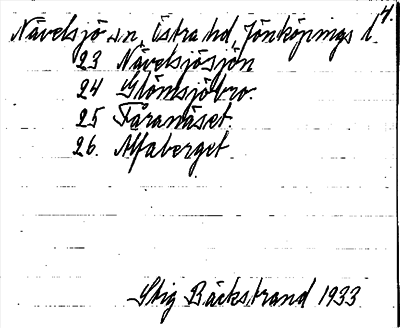 4.
Nävelsjö sn, Östra hd, Jönköpings l.
23 Nävelsjösjön
24 Glömsjöbro.
25 Fåranäset.
26. Alfaberget
Stig Bäckstrand 1933